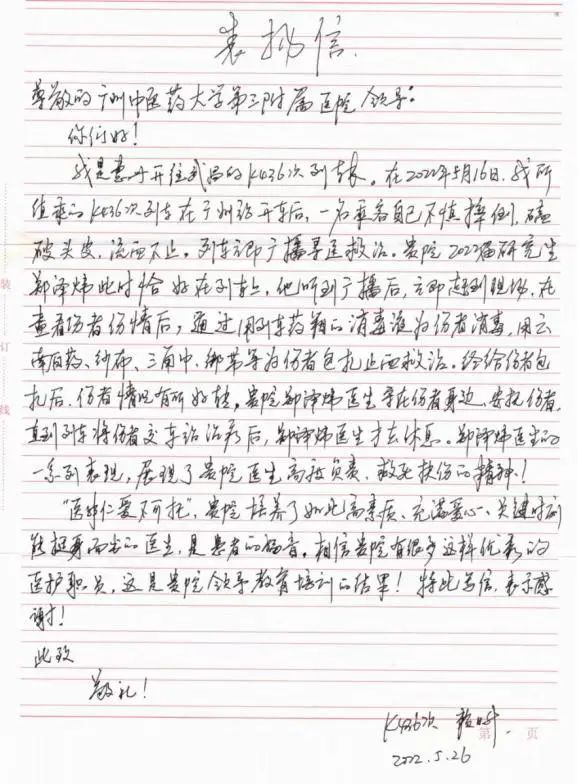 表扬信
尊敬的广州中医药大学第三附属医院领导:
你们好!
我是惠州开往武昌的K436次列车长。在2022年5月16日,我所
值乘的K436次列车在广州站开车后,一名乘客自己不慎摔倒,磕
破头皮,流血不止。列车立即广播寻医救治。贵院2022届研究生
郑泽炜此时恰好在列车上,他听到广播后,立即赶到现场,在
查看伤者伤情后,通过用列车药箱的消毒液为伤者消毒,用云
南白药、纱布、三角巾、绷带等为伤者包扎止血救治。经给伤者包
扎后,伤者情况有所好转。贵院郑泽炜医生守在伤者身边、安抚伤者,
直到列车将伤者交车站治疗后,郑泽炜医生才去休息。郑泽炜医生的
一系列表现,展现了贵院医生高度负责、救死扶伤的精神!
“医者仁爱不可托”,贵院培养了如此高素质、充满爱心、关键时刻
能挺身而出的医生,是患者的福音。相信贵院有很多这样优秀的
医护职员,这是贵院领导教育培训的结果!特此写信,表示感
谢!
此致
敬礼!
K436次
2022.5.26
第 页
装
订
线